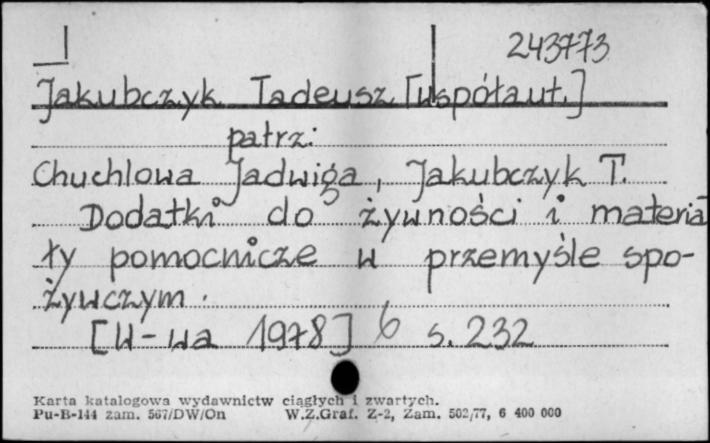 243773
Jakubczyk Tadeusz [współaut.]
patrz:
Chuchlowa Jadwiga, Jakubczyk T.
Dodatki do żywności i materia
ły pomocnicze w przemyśle spo-
żywczym.
[W-wa 1978] 6 s. 232
Karta katalogowa wydawnictw ciągłych i zwartych.
Pu-B-144 zam. 567/DW/On W.Z.Graf. Z-2, Zam. 502/77, 6 400 000